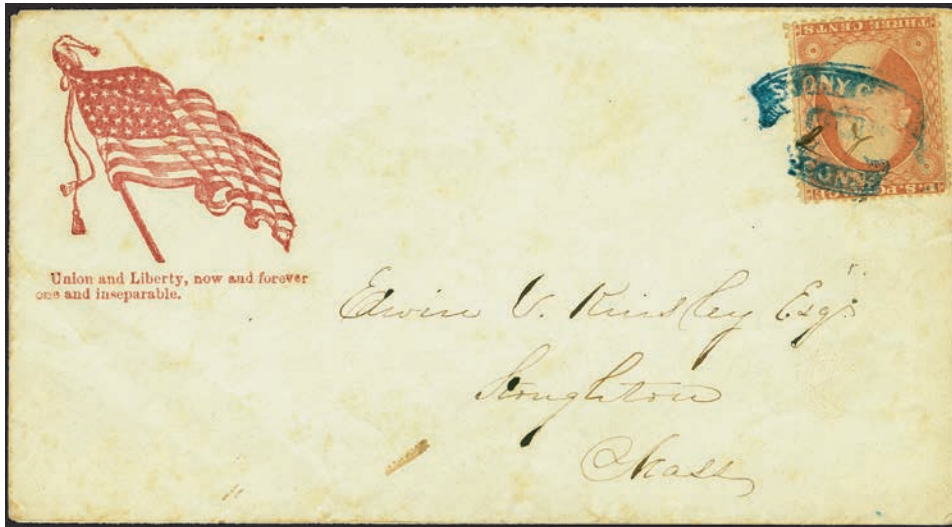 THREE CENTS
STONY C
CONN
U.S. PO
Union and Liberty, now and forever
one and inseparable.
Edwin V. Kinsley Esqr
Stoughton
Mass